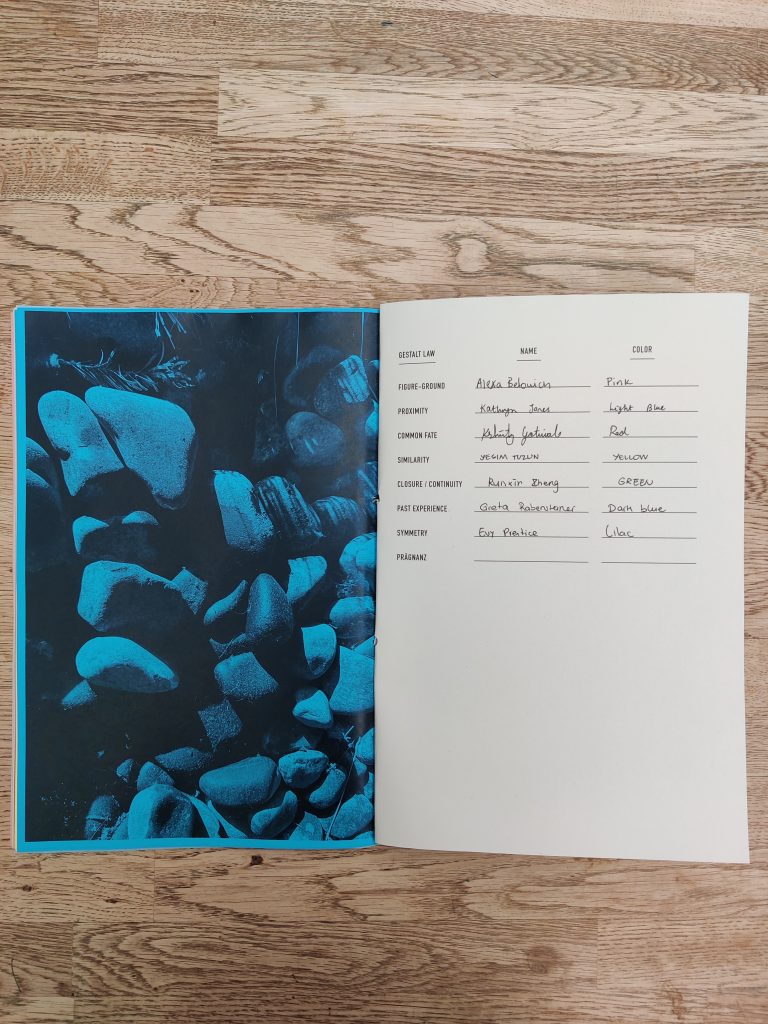 GESTALT LAW NAME COLOR
FIGURE-GROUND Alexa Belowich Pink
PROXIMITY Kathryn Jones Light Blue
COMMON FATE Red
SIMILARITY YEGIM TUZUN YELLOW
CLOSURE / CONTINUITY Runxin Zheng GREEN
PAST EXPERIENCE Greta Rabensteiner Dark blue
SYMMETRY Evy Lilac
PRÄGNANZ